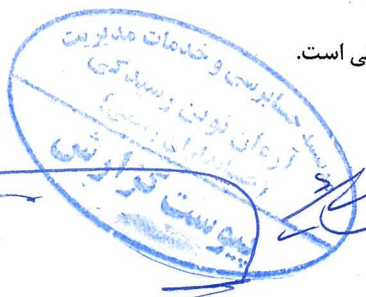 ی است.
موسسه حسابرسی و خدمات مدیریت
آرمان نوین رسیدگی
(حسابداران رسمی)
پیوست گزارش